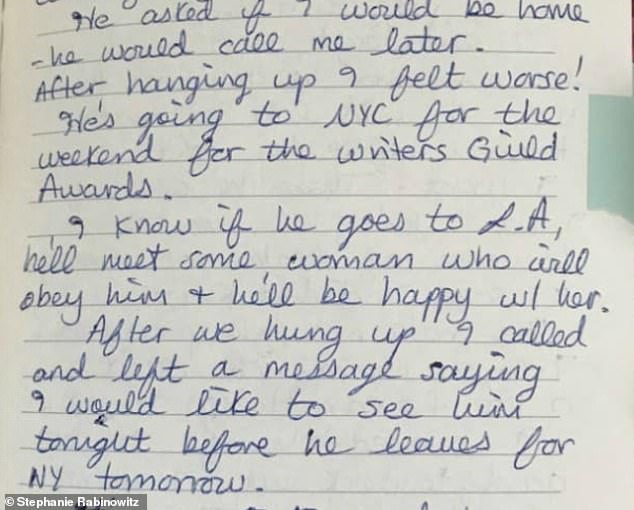 He asked if I would be home
- he would call me later.
After hanging up I felt worse!
He's going to NYC for the
weekend for the Writers Guild
Awards.
I know if he goes to L.A,
he'll meet some woman who will
obey him + he'll be happy w/ her.
After we hung up I called
and left a message saying
I would like to see him
tonight before he leaves for
NY tomorrow.
© Stephanie Rabinowitz